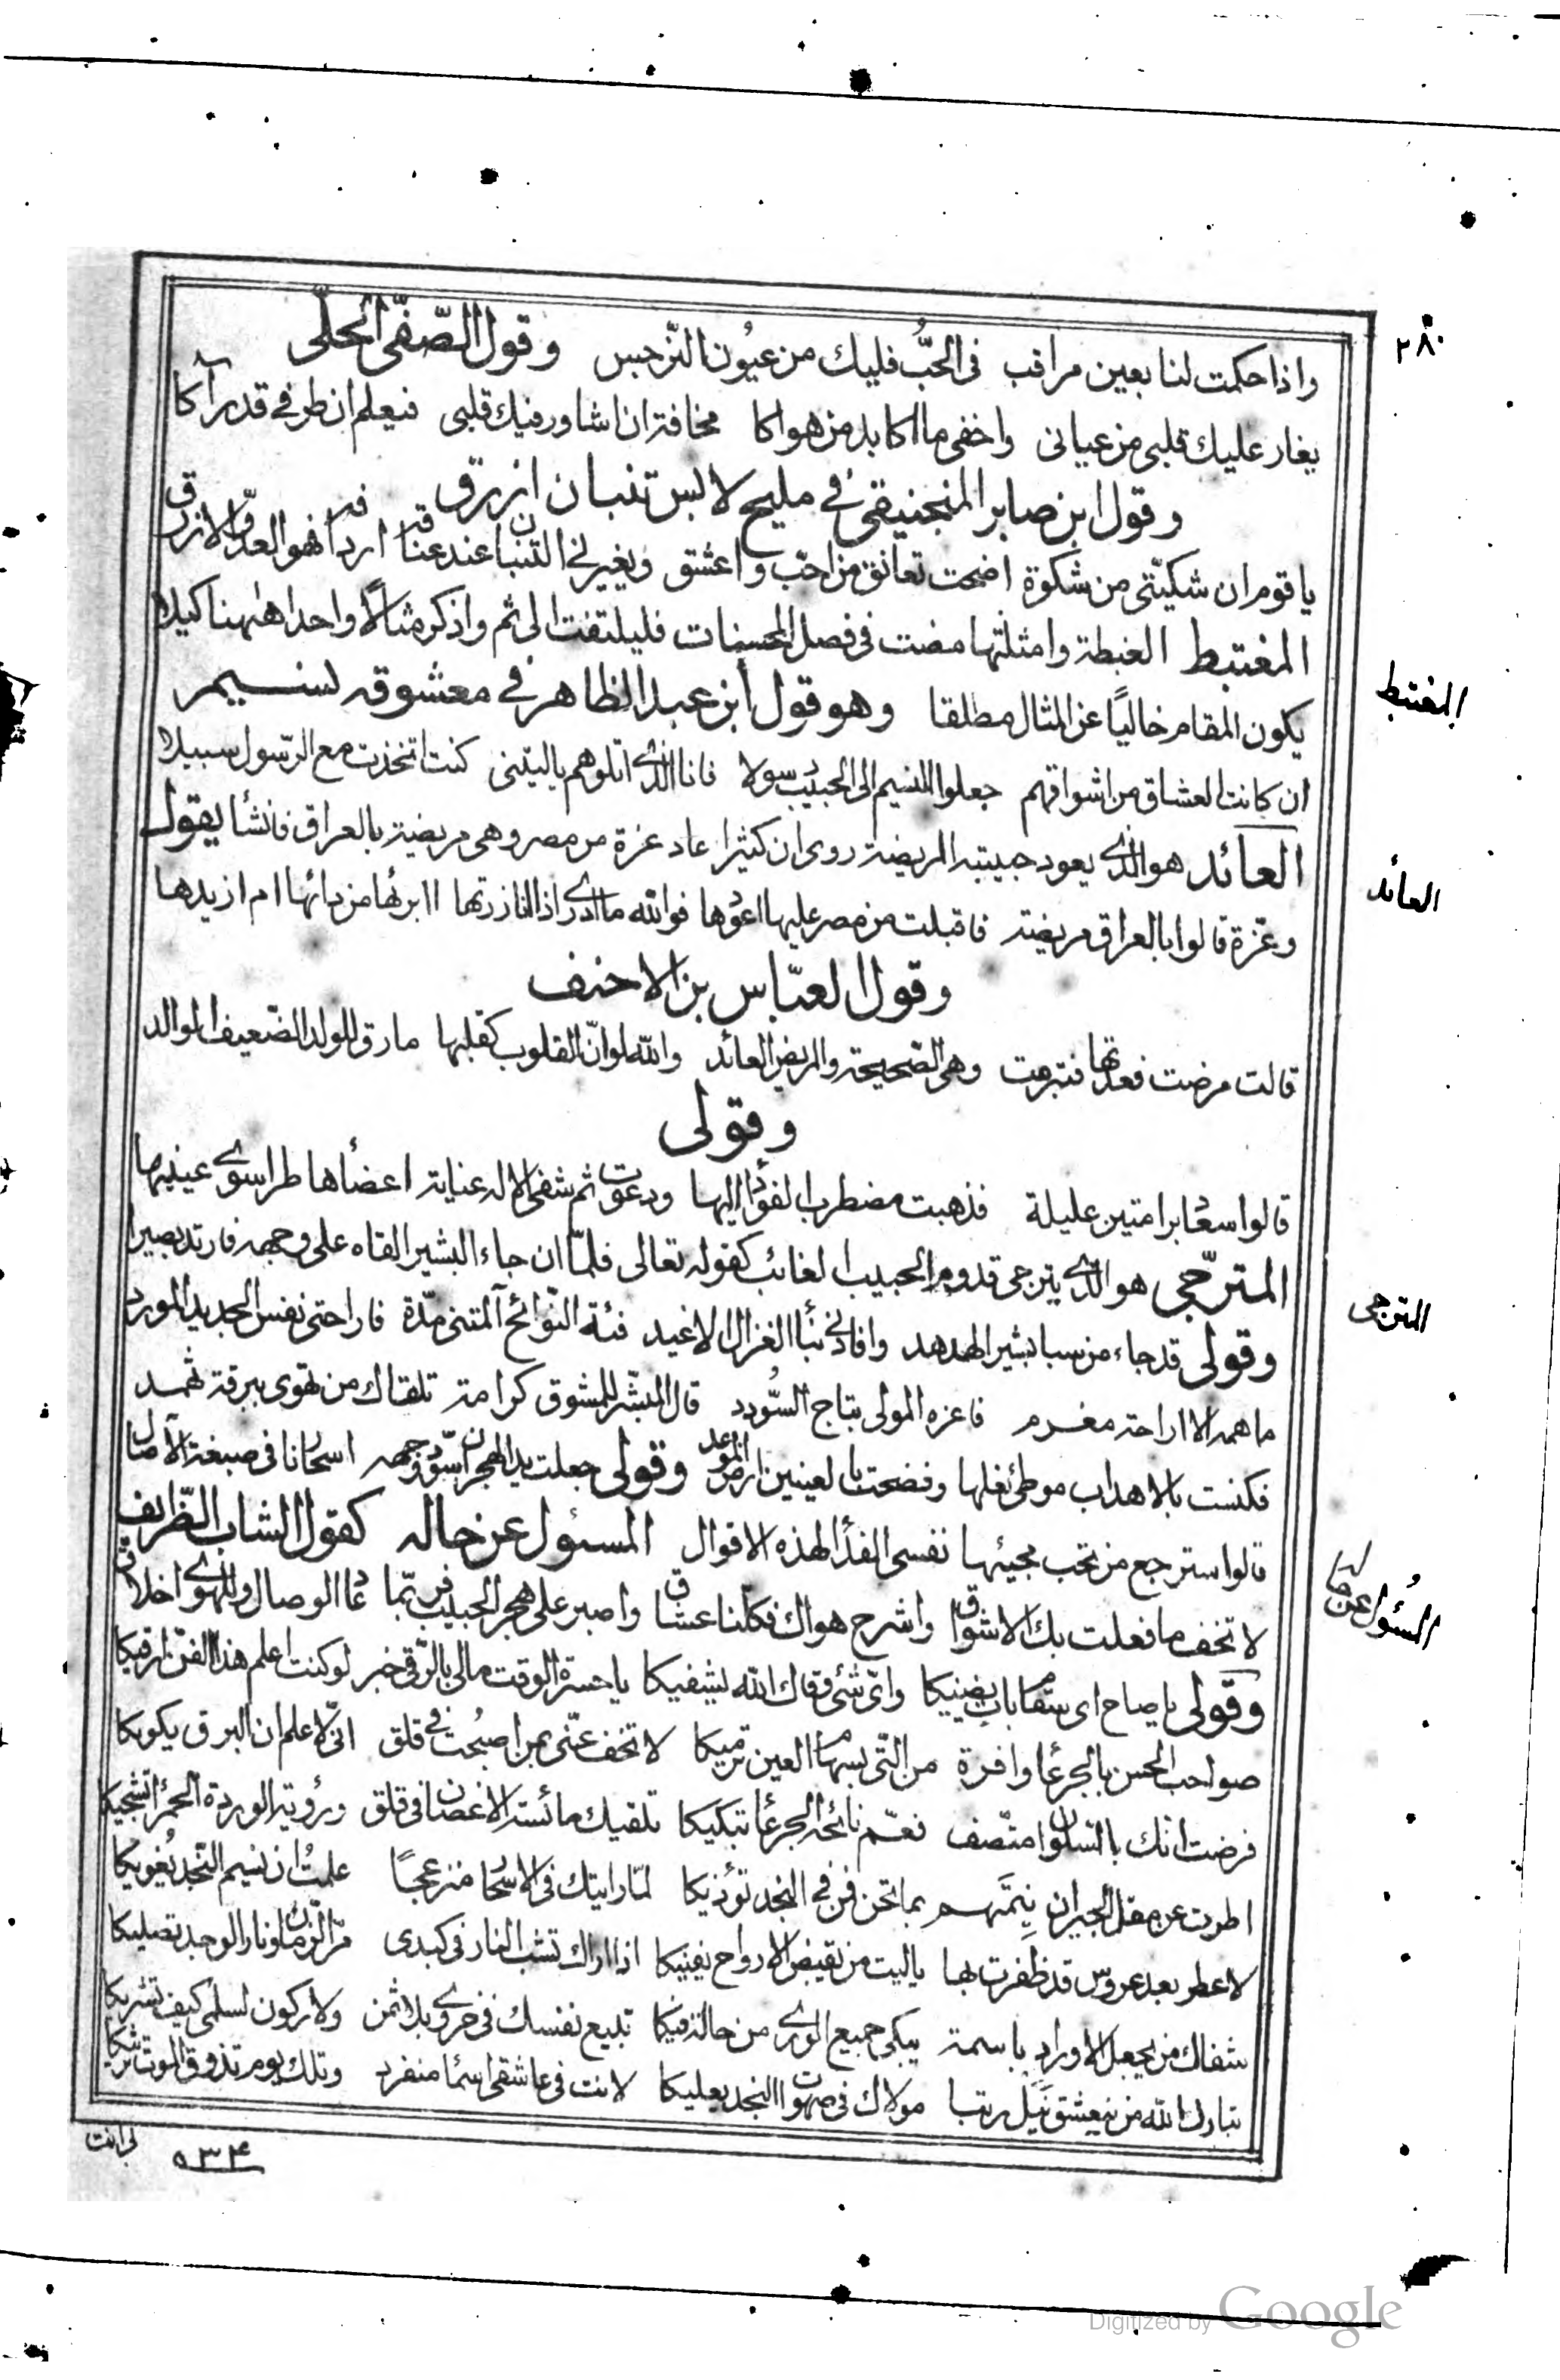 ٢٨٠
واذا حكمت لنا بعين مراقب في الحبّ فليك من عيون النّرجس وقول الصّفيّ الحلّي
يغار عليك قلبي من عياني واخفى ما اكابد من هواكا مخافة ان اشاور فيك قلبي فيعلم ان طرفي قد رآكا
وقول ابن صابر المنجنيقي في مليح لابس تنبان ازرق
يا قوم ان شكيّتي من شكوة اضحت تعانق من احبّ واعشق ويغيرني التنبان عند عناقه اردافه فهو العدوّ الازرق
المغتبط الغبطة وامثلتها مضت في فصل المحسنات فليلتفت الى ثم واذكر مثالًا واحدا ههنا كيلا
المغتبط
يكون المقام خاليًا عن المثال مطلقا وهو قول ابن عبد الظاهر في معشوقه لنسيم
ان كانت العشاق من اشواقهم جعلوا النسيم الى الحبيب رسولا فانا الذي اتلوهم يا ليتني كنت اتخذت مع الرّسول سبيلا
العائد هو الذي يعود حبيبته المريضة روى ان كثيرا عاد عزة من مصر وهي مريضة بالعراق فانشأ يقول
العائد
وعزّة قالوا بالعراق مريضة فاقبلت من مصر عليها اعودها فوالله ما ادري اذا انا زرتها اابرئها من دائها ام ازيدها
وقول العبّاس بن الاحنف
قالت مرضت فعدتها فتبرمت وهي الصّحيحة والمريض العائد والله لو انّ القلوب كقلبها ما رقّ للولد الضّعيف الوالد
وقولى
قالوا سعاد برامتين عليلة فذهبت مضطرب الفؤاد اليها ودعوت ثم شفى الاله عناية اعضاءها طرا سوى عينيها
المترجّي هو الذي يترجى قدوم الحبيب الغائب كقوله تعالى فلمّا ان جاء البشير القاه على وجهه فارتد بصيرا
المترجى
وقولى قد جاء من سبا بشير الهدهد وافادني نبأ الغزال الاغيد فئة النّوائح آلمتني مدّة فاراحتي نفس الجديد المورد
ما همه الا اراحة مغرم فاعزه المولى بتاج السّودد قال المبشّر للمشوق كرامة تلقاك من تهوى ببرقة ثهمد
فكنست بالاهداب موطئ نعلها وفضحت بالعينين ارض الموعد وقولى جعلت يد الهجران اسود وجهه اسحارنا في صبغة الآصال
قالوا سترجع من تحب مجيئها نفسي الفداء لهذه الاقوال المسئول عن حاله كقول الشاب الظّريف
المسئول عن حاله
لا تخف ما فعلت بك الاشواق واشرح هواك فكلنا عشاق واصبر على هجر الحبيب فربّما عاد الوصال وللهوى اخلاق
وقولى يا صاح اي سقام بات يضنيكا واي شئ وقاك الله يشفيكا يا حسرة الوقت مالي بالرّقى خبر لو كنت اعلم هذا الفن ارقيكا
صواحب الحسن بالجرعاء وافرة من التي بسهام العين ترميكا لا تخف عنّي بمن اصبحت في قلق انّي لاعلم ان البرق يكويكا
فرضت انّك بالسّلوان متّصف نعم نائحة الجرعاء تبكيكا تلقيك مائسة الاغصان في قلق ورؤية الوردة الحمراء تشجيكا
اطوت عن مقل الجيران نِيَّتهم بما تحن فرنج النجد تؤذيكا لمّا رايتك في الاسحار منزعجًا علمتُ ان نسيم النّجد يُغويكا
لا عطر بعد عروس قد ظفرت بها يا ليت من نقيض الارواح يفنيكا اذا اراك تشب النار في كبدي قرّ الزمان ونار الوجد تصليكا
شفاك من يجعل الاوراد باسمة يبكي جميع الورى من حالة فيكا تبيع نفسك في حزوى بلا ثمن ولا ركون لسلمى كيف تشريكا
تبارك الله من يعشق يَنَل رتبا مولاك في صهوات النجد يعليكا لانت في عاشقي اسماء منفرد وتلك يوم تذوق الموت ترثيكا
لانت
٥٣٤
Digitized by Google